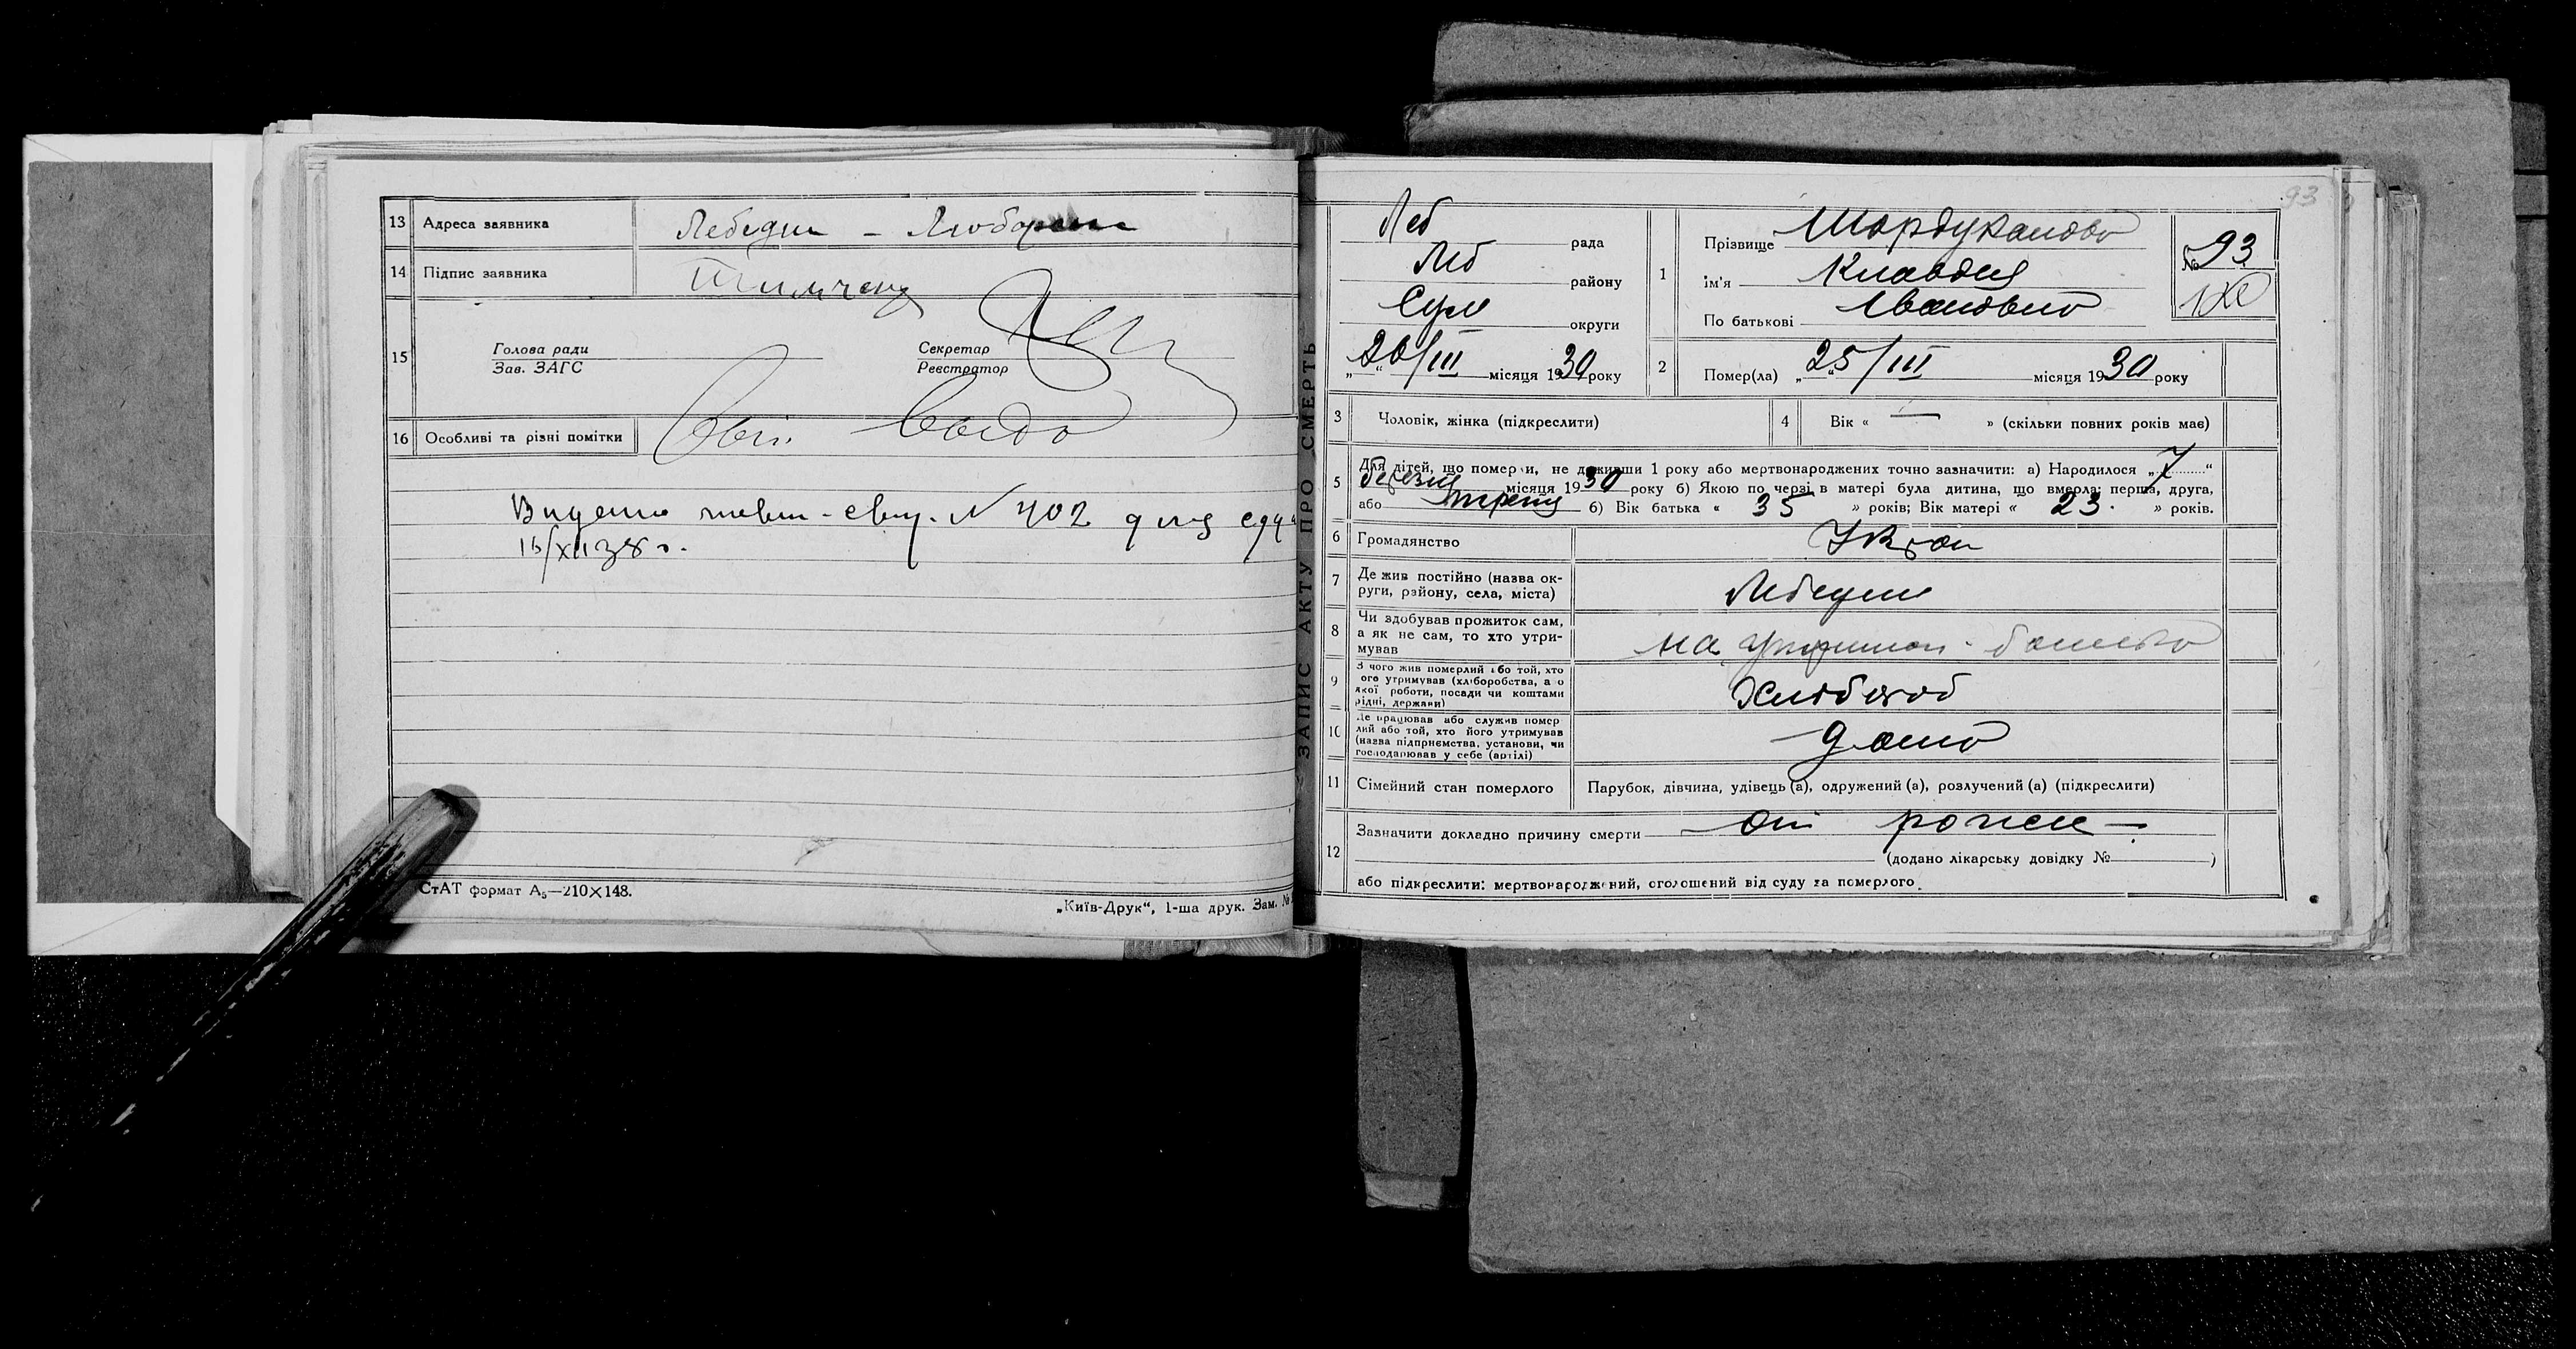 13 Адреса заявника Лебедин – Любарська
14 Підпис заявника Тимченко
15 Голова ради
Зав. ЗАГС
Секретар
Реєстратор
16 Особливі та різні помітки
Видано N 402 для
16/XII 38 г.
СтАТ формат А₅—210×148.
„Київ-Друк“, 1-ша друк. Зам. №
ЗАПИС АКТУ ПРО СМЕРТЬ
93
Леб рада
Леб району
Сум округи
„26/III місяця 1930 року
1 Прізвище
ім'я Клавдія
По батькові Івановна
№ 93
2 Помер(ла) „25/III місяця 1930 року
3 Чоловік, жінка (підкреслити)
4 Вік « — » (скільки повних років має)
5 Для дітей, що померли, не доживши 1 року або мертвонароджених точно зазначити: а) Народилося „7“
березня місяця 1930 року б) Якою по черзі в матері була дитина, що вмерла: перша, друга,
або третя б) Вік батька « 35 » років; Вік матері « 23 » років.
6 Громадянство Укр
7 Де жив постійно (назва ок-
руги, району, села, міста) Лебедин
8 Чи здобував прожиток сам,
а як не сам, то хто утри-
мував на утриман. батька
9 З чого жив померлий або той, хто
ого утримував (хліборобства, а о
якої роботи, посади чи коштами
рідні, держави) Хлібороб
10 Де працював або служив помер
лий або той, хто його утримував
(назва підприємства, установи, чи
господарював у себе (артілі) дома
11 Сімейний стан померлого Парубок, дівчина, удівець (а), одружений (а), розлучений (а) (підкреслити)
12 Зазначити докладно причину смерти — от рожи —
(додано лікарську довідку № )
або підкреслити: мертвонароджений, оголошений від суду за померлого.